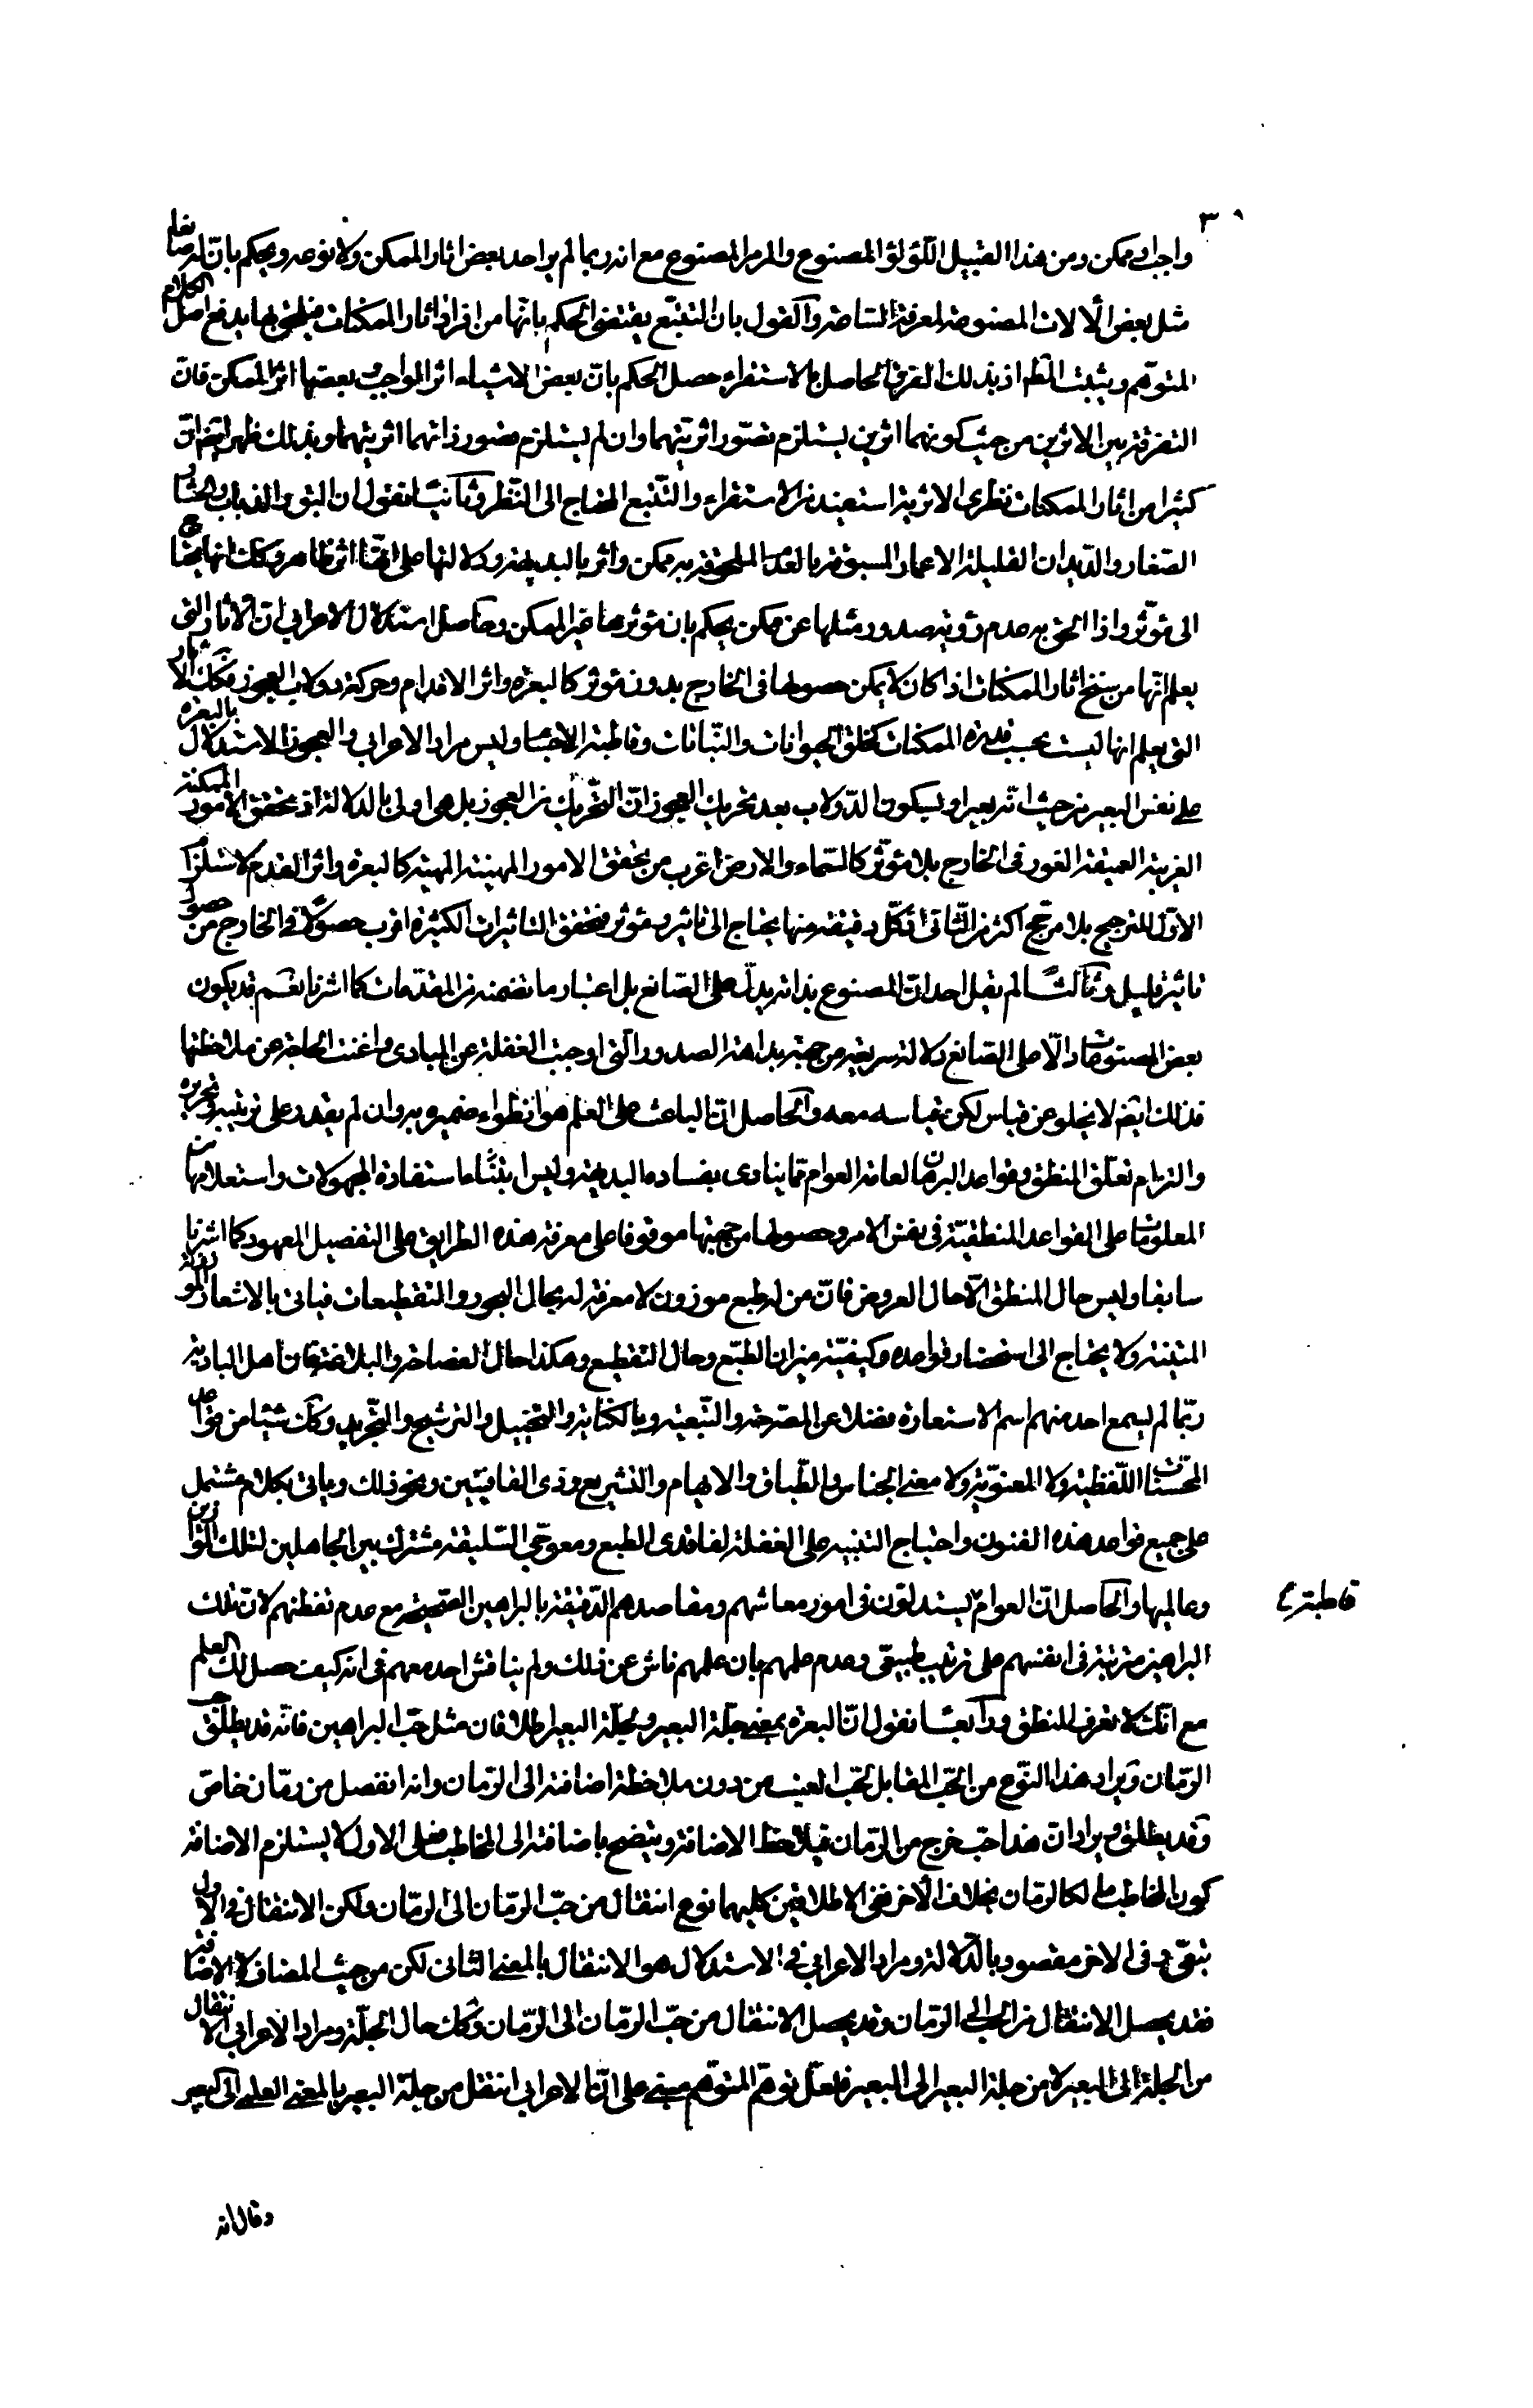 ٣٠
واجب او ممكن ومن هذا القبيل اللّؤلؤ المصنوع والمرمر المصنوع مع انه ربما لم ير احد بعض اثار الممكن ولا نوعه ويحكم بانّ له صانعا
مثل بعض الالات المصنوعة لمعرفة الساعة والقول بان التتبّع يقتضى الحكم بانّها من افراد اثار الممكنات فيلحق بها يدفع اصل الكلام
المتوهّم ويثبت المط اذ بذلك الفرق الحاصل بالاستقراء حصل الحكم بانّ بعض الاشياء اثر الواجب وبعضها اثر الممكن فانّ
التفرقة بين الاثرين من حيث كونهما اثرين يستلزم تصوّر اثريّتهما وان لم يستلزم تصور ذاتهما اثريتهما وبذلك ظهر ايضا انّ
كثيرا من اثار الممكنات نظرى الاثرية استعيد من الاستقراء والتّتبع المحتاج الى النّظر وثانيا نقول ان البق والذباب والحشار
الصّغار والدّيدان القليلة الاعمار المسبوقة بالعدم الملحوقة به ممكن واثر بالبديهة ودلالتها على انّها اثر ظاهر وكك انها يحتاج
الى مؤثّر واذا الحق به عدم رؤية صدور مثلها عن ممكن يحكم بان مؤثرها غير الممكن وحاصل استدلال الاعرابي ان الاثار التى
يعلم انّها من سنخ اثار الممكنات اذ كان لا يمكن حصولها فى الخارج بدون مؤثر كالبعرة واثر الاقدام وحركة دولاب العجوز فكك الاثار
التى يعلم انها ليست بحسب قدرة الممكنات كخلق الحيوانات والنّباتات وقاطبة الاجسام وليس مراد الاعرابي والعجوز الاستدلال بالبعرة
على نفس البعير من حيث انّه بعير او بسكون الدّولاب بعد تحريك العجوز انّ التّحريك من العجوز بل هى اولى بالدلالة اذ تحقق الامور الممكنة
الغريبة العميقة الغور فى الخارج بلا مؤثّر كالسّماء والارض اغرب من تحقق الامور الهيّنة المهينة كالبعرة واثر القدم لاستلزام
الاوّل للترجيح بلا مرجّح اكثر من الثّانى اذ كلّ دقيقة منها يحتاج الى تاثير ومؤثر فتحقق التاثيرات الكثيرة اقرب حصولا فى الخارج من حصول
تاثير قليل وثالثا لم يقل احد انّ المصنوع بذاته يدلّ على الصّانع بل اعتبار ما تضمنه من المقدّمات كما اشرنا نعم قد يكون
بعض المصنوعات دالّا على الصّانع دلالة سريعة من جهة بداهة الصدور الّتى اوجبت الغفلة عن المبادى واغنت الحاجة عن ملاحظتها
فذلك ايضا لا يخلو عن قياس لكن قياسه معه والحاصل انّ الباعث على العلم هو انطواء ضميره به وان لم يقدر على ترتيبه وتحريره
والتزام تعلّق المنطق وقواعد البرهان لعامة العوام ممّا ينادى بفساده البديهة وليس ابتناء استفادة المجهولات واستعلامها من
المعلومات على القواعد المنطقيّة فى نفس الامر وحصولها من جهتها موقوفا على معرفة هذه الطرايق على التفصيل المعهود كما اشرنا
سابقا وليس حال المنطق الّا حال العروض فانّ من له طبع موزون لا معرفة له بحال البحور والتقطيعات فياتى بالاشعار الموزونة
المتينة ولا يحتاج الى استحضار قواعده وكيفيّة ميزان الطّبع وحال التقطيع وهكذا حال الفصاحة والبلاغة فان اهل البادية
ربّما لم يسمع احد منهم اسم الاستعارة فضلا عن المصرحة والتّبعية وبالكناية والتّخييل والترشيح والتجريد وكك شيئا من قواعد
المحسّنات اللّفظية ولا المعنويّة ولا معنى الجناس والطّباق والايهام والتشريع وذى القافيتين ونحو ذلك وياتى بكلام مشتمل
على جميع قواعد هذه الفنون واحتياج التنبيه على الغفلة لفاقدى الطبع ومعوجّى السّليقة مشترك بين الجاهلين لتلك القوانين
وعالميها والحاصل انّ العوامّ يستدلّون فى امور معاشهم ومقاصدهم الدّقيقة بالبراهين الصّحيحة مع عدم تفطنهم لانّ تلك
قاطبة
البراهين مرتبة فى انفسهم على ترتيب طبيعىّ وعدم علمهم بان علمهم ناش عن ذلك ولم يناقش احد معهم فى انه كيف حصل لك العلم
مع انّك لا تعرف المنطق ورابعا نقول انّ البعرة بمعنى جلّة البعير ولجلّة البعير اطلاقان مثل حبّ البراهين فانّه قد يطلق حب
الرمّان ويراد هذا النّوع من الحبّ المقابل لحب العنب من دون ملاحظة اضافته الى الرّمان وانه انفصل من رمّان خاصّ
وقد يطلق ويراد انّ هذا حبّ خرج من الرمّان فيلاحظ الاضافة ويتضح باضافته الى المخاطب فعلى الاول لا يستلزم الاضافة
كون المخاطب مالكا لرمّان بخلاف الاخر ففى الاطلاقين كليهما نوع انتقال من حبّ الرمّان الى الرمّان ولكن الانتقال فى الاول
تبعىّ وفى الاخر مقصود بالدّلالة ومراد الاعرابي فى الاستدلال هو الانتقال بالمعنى الثانى لكن من حيث المضاف لا الاضافة
فقد يحصل الانتقال من الحب الى الرمّان وقد يحصل الانتقال من حبّ الرمّان الى الرمّان وكك حال الجلّة ومراد الاعرابي الانتقال
من الجلة الى البعير لا من جلة البعير الى البعير فلعلّ توهّم المتوهّم مبنى على انّ الاعرابي انتقل من جلة البعير بالمعنى العلمى الى البعير
وقال انه